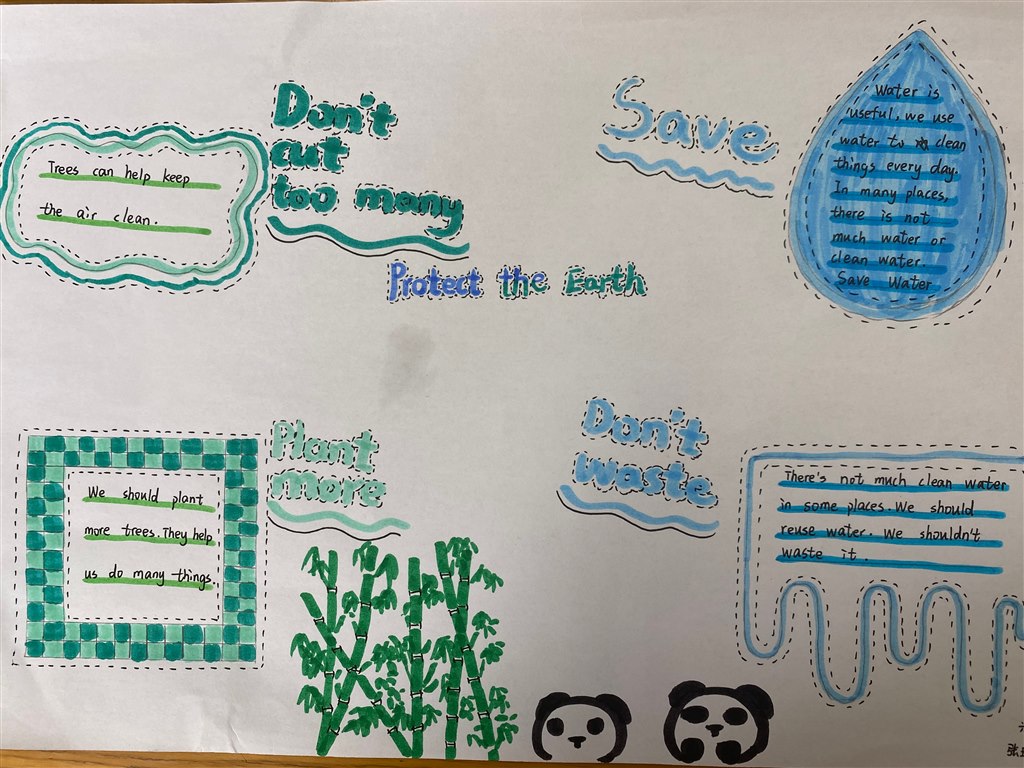 Don't
cut
too many
Trees can help keep
the air clean.
Save
Water is
useful, we use
water to clean
things every day.
In many places,
there is not
much water or
clean water.
Save Water
Protect the Earth
Plant
more
We should plant
more trees. They help
us do many things.
Don't
waste
There's not much clean water
in some places. We should
reuse water. We shouldn't
waste it.
张